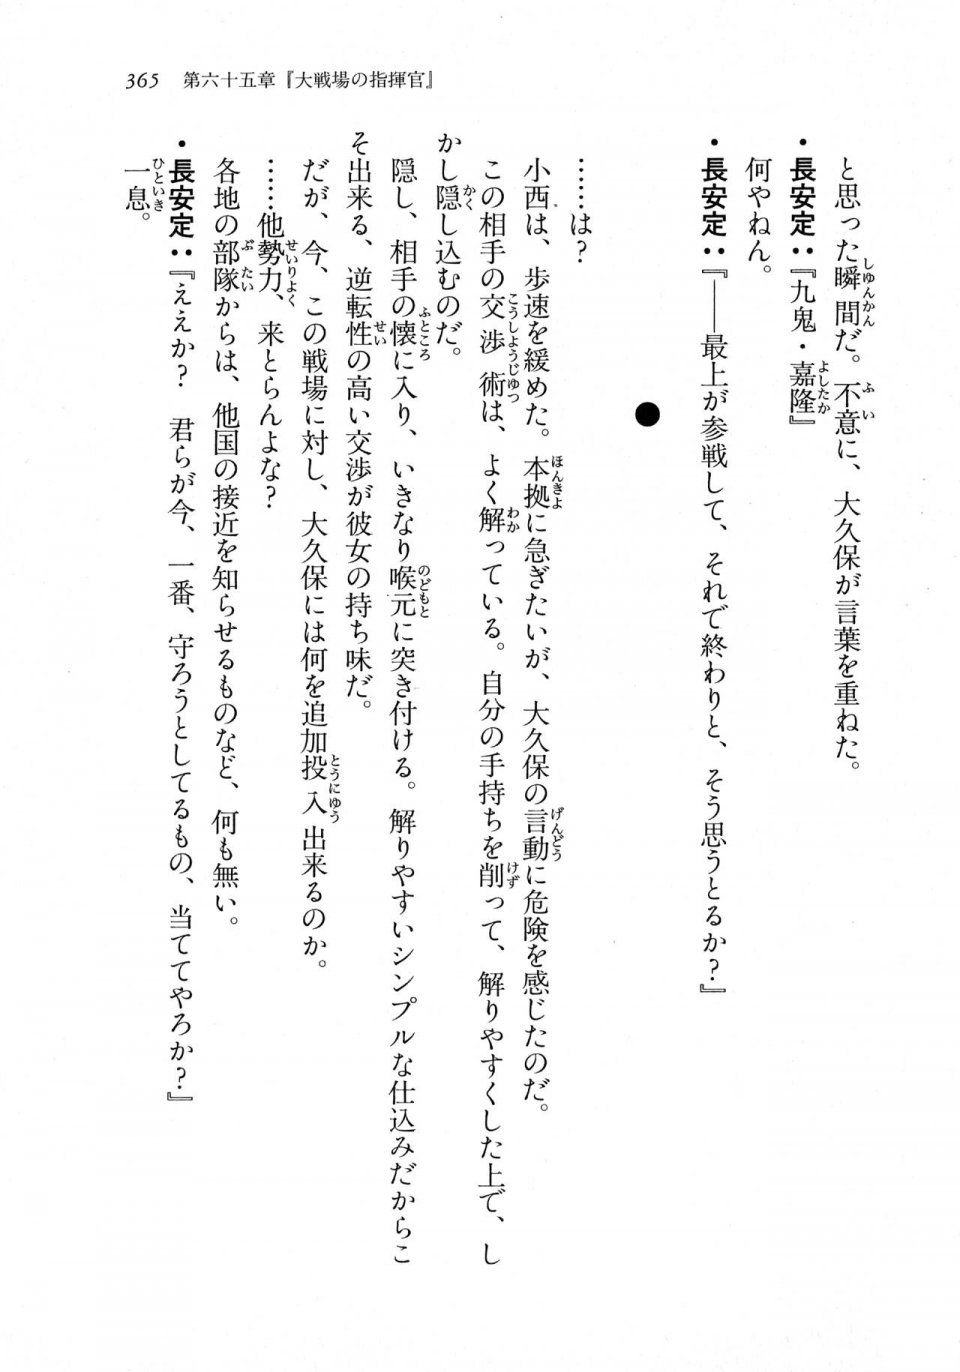 365　第六十五章『大戦場の指揮官』
と思った瞬間だ。不意に、大久保が言葉を重ねた。
・長安定：『九鬼・嘉隆』
何やねん。
・長安定：『――最上が参戦して、それで終わりと、そう思うとるか？』
●
……は？
小西は、歩速を緩めた。本拠に急ぎたいが、大久保の言動に危険を感じたのだ。
この相手の交渉術は、よく解っている。自分の手持ちを削って、解りやすくした上で、し
かし隠し込むのだ。
隠し、相手の懐に入り、いきなり喉元に突き付ける。解りやすいシンプルな仕込みだからこ
そ出来る、逆転性の高い交渉が彼女の持ち味だ。
だが、今、この戦場に対し、大久保には何を追加投入出来るのか。
……他勢力、来とらんよな？
各地の部隊からは、他国の接近を知らせるものなど、何も無い。
・長安定：『ええか？　君らが今、一番、守ろうとしてるもの、当ててやろか？』
一息。